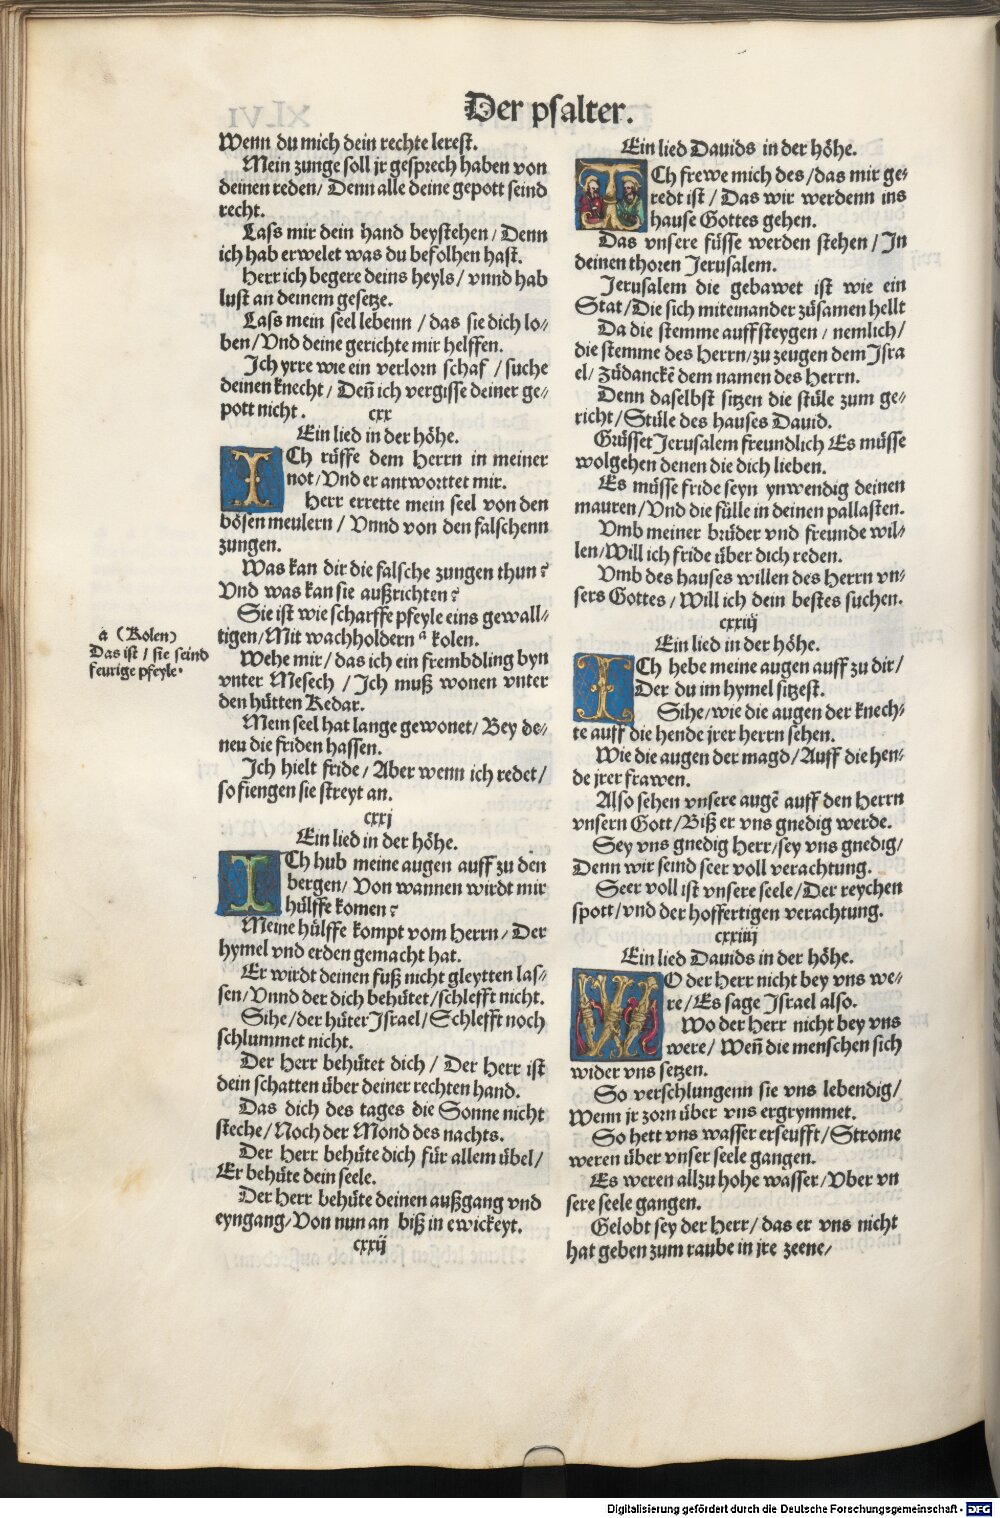 Der psalter.
Wenn du mich dein rechte lerest.
Mein zunge soll jr gesprech haben von
deinen reden/ Denn alle deine gepott seind
recht.
Lass mir dein hand beystehen/ Denn
ich hab erwelet was du befolhen hast.
Herr ich begere deins heyls/ vnnd hab
lust an deinem gesetze.
Lass mein seel lebenn /das sie dich lo⸗
ben/Vnd deine gerichte mir helffen.
Ich yrre wie ein verlorn schaf /suche
deinen knecht/ Deñ ich vergisse deiner ge⸗
pott nicht. cxx
Ein lied in der höhe.
ICh rüffe dem Herrn in meiner
not/Vnd er antworttet mir.
Herr errette mein seel von den
bösen meulern/ Vnnd von den falschenn
zungen.
Was kan dir die falsche zungen thun?
Vnd was kan sie außrichten?
Sie ist wie scharffe pfeyle eins gewall⸗
tigen/Mit wachholdern ª kolen.
a (Kolen)
Das ist/ sie seind
feurige pfeyle.
Wehe mir/das ich ein frembdling byn
vnter Mesech /Ich muß wonen vnter
den hütten Kedar.
Mein seel hat lange gewonet/ Bey de⸗
nen die friden hassen.
Ich hielt fride/ Aber wenn ich redet/
so fiengen sie streyt an.
cxxj
Ein lied in der höhe.
ICh hub meine augen auff zu den
bergen/ Von wannen wirdt mir
hülffe komen?
Meine hülffe kompt vom Herrn/ Der
hymel vnd erden gemacht hat.
Er wirdt deinen fuß nicht gleytten las⸗
sen/Vnnd der dich behütet/schlefft nicht.
Sihe/der hüter Israel/Schlefft noch
schlummet nicht.
Der Herr behütet dich/ Der Herr ist
dein schatten über deiner rechten hand.
Das dich des tages die Sonne nicht
steche/Noch der Mond des nachts.
Der Herr behüte dich für allem übel/
Er behüte dein seele.
Der Herr behüte deinen außgang vnd
eyngang/Von nun an biß in ewickeyt.
cxxij
Ein lied Dauids in der höhe.
ICh frewe mich des/das mir ge⸗
redt ist/ Das wir werdenn ins
hause Gottes gehen.
Das vnsere füsse werden stehen/In
deinen thoren Jerusalem.
Jerusalem die gebawet ist wie ein
Stat/Die sich miteinander züsamen hellt
Da die stemme auffsteygen/ nemlich/
die stemme des Herrn/zu zeugen dem Isra
el/ Züdanckẽ dem namen des Herrn.
Denn daselbst sitzen die stüle zum ge⸗
richt/Stüle des hauses Dauid.
Grüsset Jerusalem freundlich Es müsse
wolgehen denen die dich lieben.
Es müsse fride seyn ynwendig deinen
mauren/Vnd die fülle in deinen pallasten.
Vmb meiner brüder vnd freunde wil⸗
len/Will ich fride über dich reden.
Vmb des hauses willen des Herrn vn⸗
sers Gottes/Will ich dein bestes suchen.
cxxiij
Ein lied in der höhe.
ICh hebe meine augen auff zu dir/
Der du im hymel sitzest.
Sihe/wie die augen der knech⸗
te auff die hende jrer herrn sehen.
Wie die augen der magd/Auff die hen⸗
de jrer frawen.
Also sehen vnsere augẽ auff den Herrn
vnsern Gott/Biß er vns gnedig werde.
Sey vns gnedig Herr/sey vns gnedig/
Denn wir seind seer voll verachtung.
Seer voll ist vnsere seele/Der reychen
spott/vnd der hoffertigen verachtung.
cxxiiij
Ein lied Dauids in der höhe.
WO der Herr nicht bey vns we⸗
re/Es sage Israel also.
Wo der Herr nicht bey vns
were/ Weñ die menschen sich
wider vns setzen.
So verschlungenn sie vns lebendig/
Wenn jr zorn über vns ergrymmet.
So hett vns wasser erseufft/Strome
weren über vnser seele gangen.
Es weren allzu hohe wasser/Vber vn
sere seele gangen.
Gelobt sey der Herr/das er vns nicht
hat geben zum raube in jre zeene/
Digitalisierung gefördert durch die Deutsche Forschungsgemeinschaft - DFG